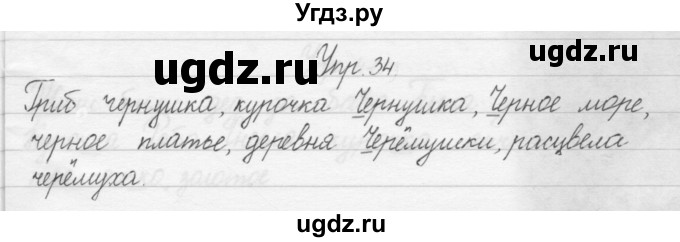 Угдз.ру
ugdz.ru
ugdz.ru
Упр. 34.
Гриб чернушка, курочка Чернушка, Черное море,
черное платье, деревня Черёмушки, расцвела
черёмуха.
ugdz.ru
ugdz.ru